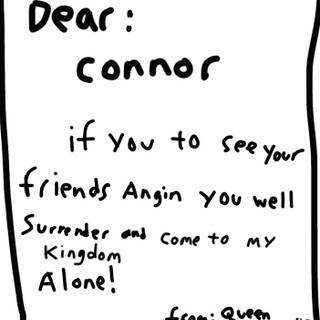 Dear:
connor
if you to see your
friends Angin you well
Surrender and come to my
Kingdom
Alone!
from: Queen